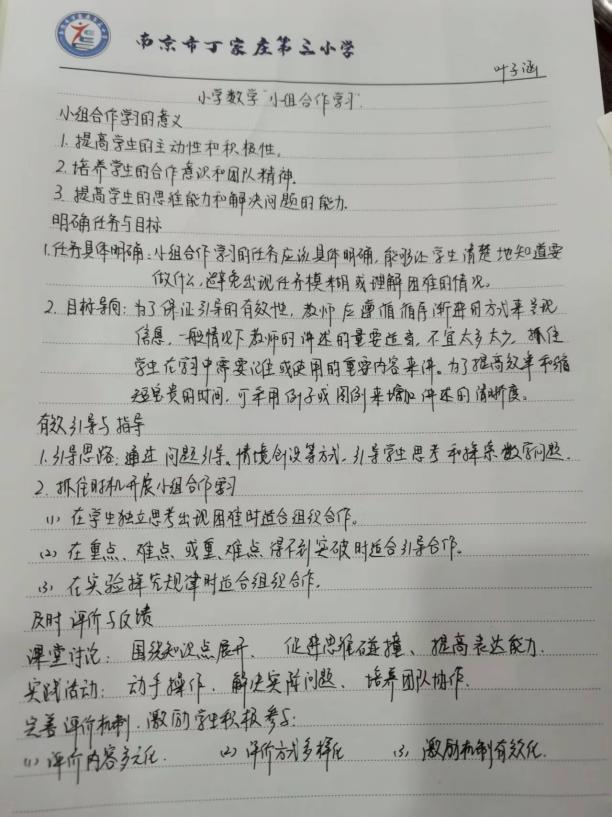 南京市丁家庄第三小学
叶子涵
小学数学“小组合作学习”
小组合作学习的意义
1. 提高学生的主动性和积极性。
2. 培养学生的合作意识和团队精神。
3. 提高学生的思维能力和解决问题的能力.
明确任务与目标
1.任务具体明确:小组合作学习的任务应该具体明确,能够让学生清楚地知道要
做什么,避免出现任务模糊或理解困难的情况。
2. 目标导向:为了保证引导的有效性,教师应遵循循序渐进的方式来呈现
信息,一般情况下教师的讲述的量要适高,不宜太多太少,抓住
学生在学习中需要记住或使用的重要内容来讲。为了提高效率和缩
短总费的时间,可采用例子或图例来增加讲述的清晰度。
有效引导与指导
1.引导思路:通过问题引导、情境创设等方式,引导学生思考和探索数学问题.
2. 抓住时机开展小组合作学习
(1) 在学生独立思考出现困难时适合组织合作。
(2) 在重点、难点或重、难点得不到突破时适合引导合作。
(3) 在实验探究规律时适合组织合作。
及时评价与反馈
课堂讨论: 围绕知识点展开、促进思维碰撞、提高表达能力.
实践活动: 动手操作、解决实际问题、培养团队协作.
完善评价机制,激励学生积极参与:
(1) 评价内容多元化. (2) 评价方式多样化 (3) 激励机制有效化.